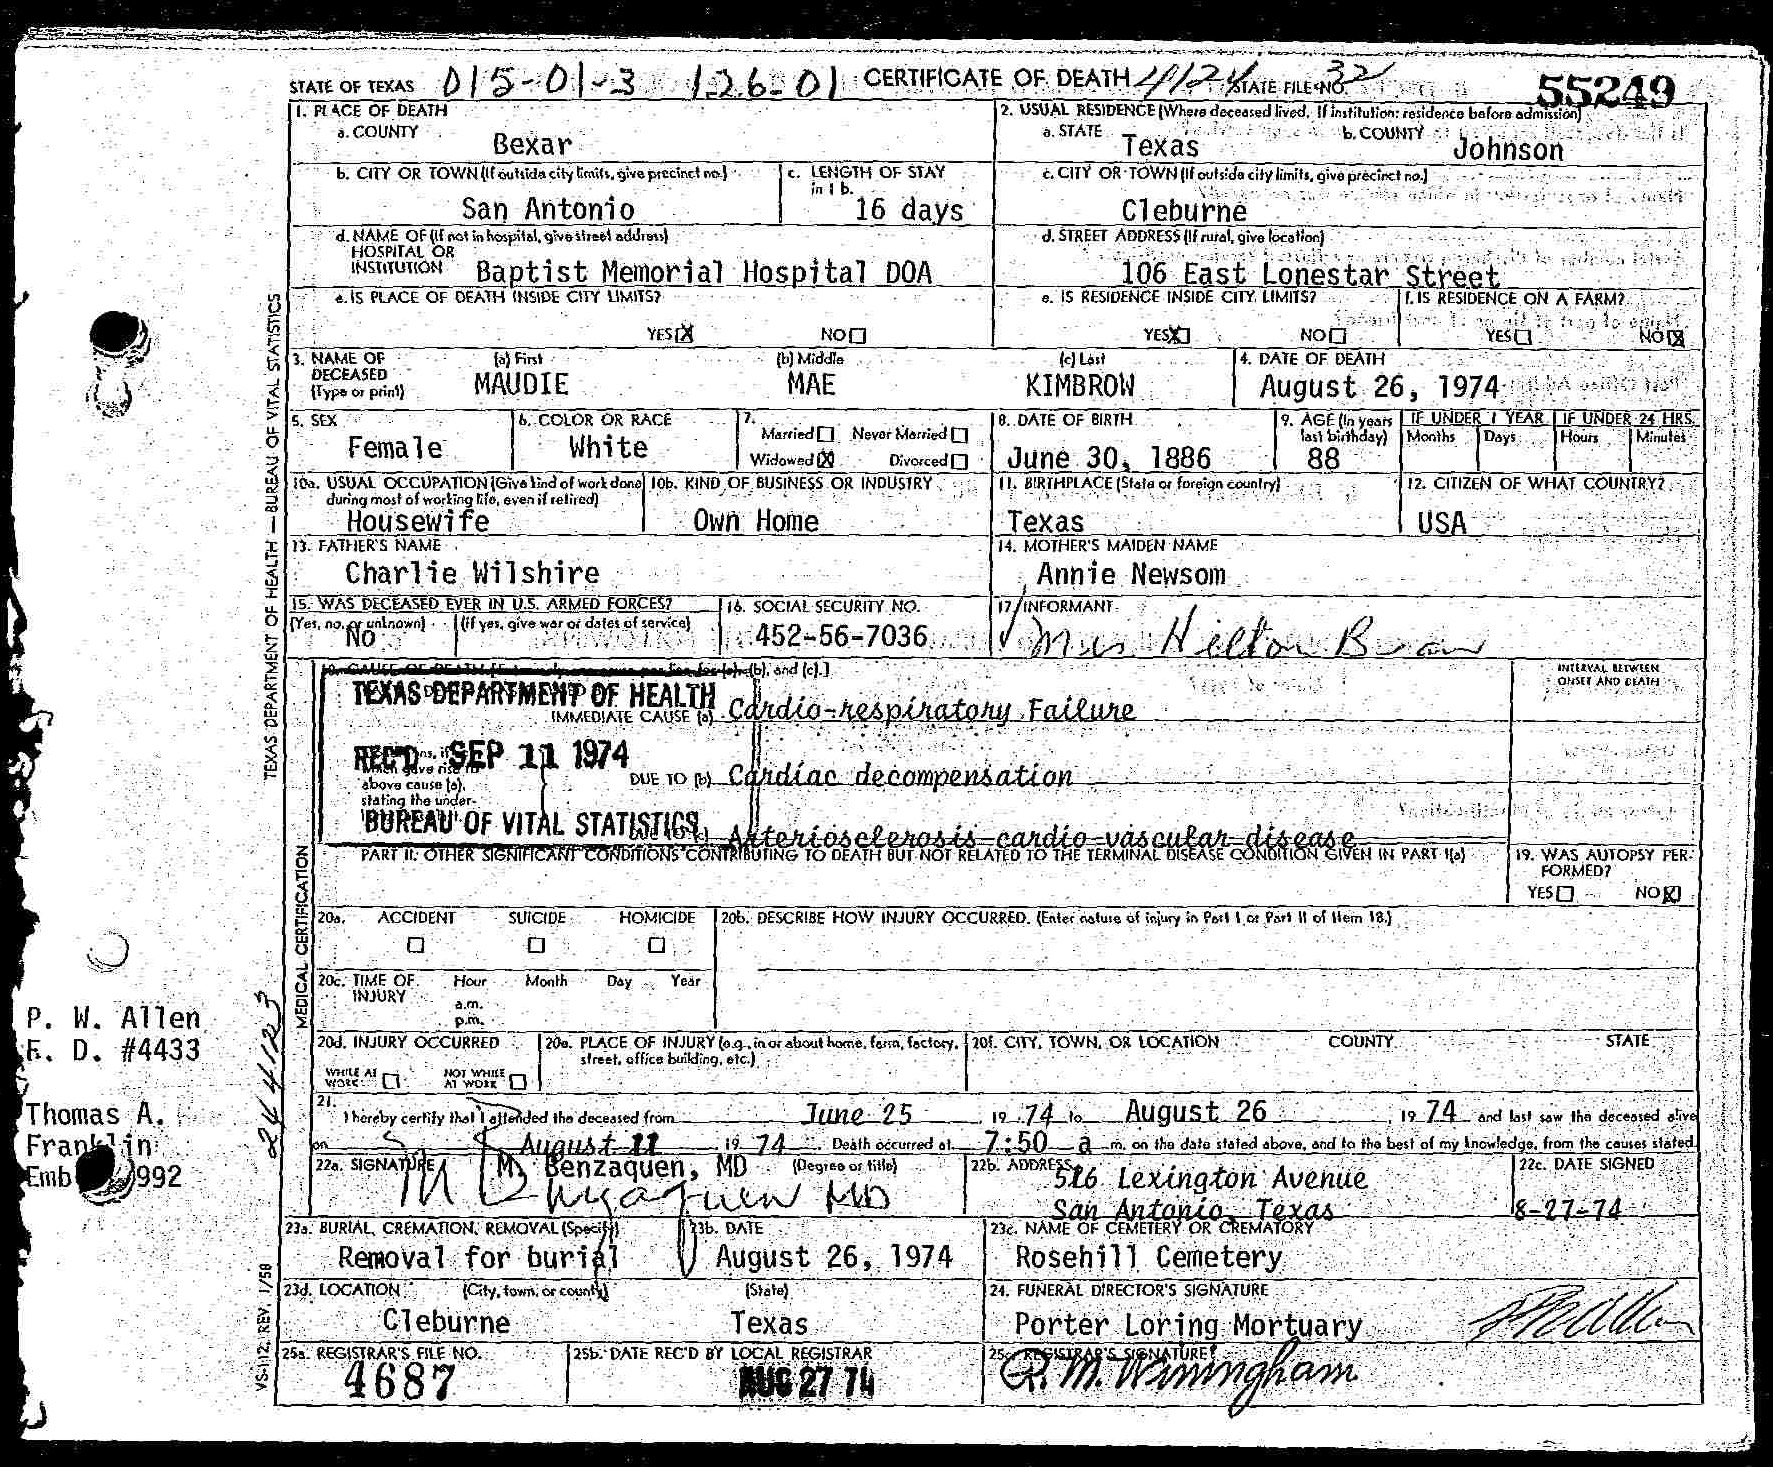 STATE OF TEXAS 015-01-3 126-01 CERTIFICATE OF DEATH 4124 STATE FILE NO. 32 55249
1. PLACE OF DEATH
a. COUNTY
Bexar
2. USUAL RESIDENCE (Where deceased lived. If institution: residence before admission)
a. STATE
Texas
b. COUNTY
Johnson
b. CITY OR TOWN (If outside city limits, give precinct no.)
San Antonio
c. LENGTH OF STAY
in 1 b.
16 days
c. CITY OR TOWN (If outside city limits, give precinct no.)
Cleburne
d. NAME OF (If not in hospital, give street address)
HOSPITAL OR
INSTITUTION Baptist Memorial Hospital DOA
d. STREET ADDRESS (If rural, give location)
106 East Lonestar Street
e. IS PLACE OF DEATH INSIDE CITY LIMITS?
YES X NO
e. IS RESIDENCE INSIDE CITY LIMITS?
YES X NO
f. IS RESIDENCE ON A FARM?
YES NO X
3. NAME OF
DECEASED
(Type or print)
(a) First
MAUDIE
(b) Middle
MAE
(c) Last
KIMBROW
4. DATE OF DEATH
August 26, 1974
5. SEX
Female
6. COLOR OR RACE
White
7.
Married Never Married
Widowed X Divorced
8. DATE OF BIRTH
June 30, 1886
9. AGE (In years
last birthday)
88
IF UNDER 1 YEAR
Months Days
IF UNDER 24 HRS.
Hours Minutes
10a. USUAL OCCUPATION (Give kind of work done
during most of working life, even if retired)
Housewife
10b. KIND OF BUSINESS OR INDUSTRY
Own Home
11. BIRTHPLACE (State or foreign country)
Texas
12. CITIZEN OF WHAT COUNTRY?
USA
13. FATHER'S NAME
Charlie Wilshire
14. MOTHER'S MAIDEN NAME
Annie Newsom
15. WAS DECEASED EVER IN U.S. ARMED FORCES?
(Yes, no, or unknown) (If yes, give war or dates of service)
No
16. SOCIAL SECURITY NO.
452-56-7036
17. INFORMANT
Mrs Hilton
TEXAS DEPARTMENT OF HEALTH — BUREAU OF VITAL STATISTICS
18. CAUSE OF DEATH (b), and (c).]
INTERVAL BETWEEN
ONSET AND DEATH
TEXAS DEPARTMENT OF HEALTH
IMMEDIATE CAUSE (a) Cardio-respiratory Failure
REC'D SEP 11 1974
which gave rise to
above cause (a),
stating the under-
DUE TO (b) Cardiac decompensation
BUREAU OF VITAL STATISTICS
Arteriosclerosis cardio vascular disease
PART II. OTHER SIGNIFICANT CONDITIONS CONTRIBUTING TO DEATH BUT NOT RELATED TO THE TERMINAL DISEASE CONDITION GIVEN IN PART I(a)
19. WAS AUTOPSY PER-
FORMED?
YES NO X
MEDICAL CERTIFICATION
20a. ACCIDENT SUICIDE HOMICIDE
20b. DESCRIBE HOW INJURY OCCURRED. (Enter nature of injury in Part I or Part II of Item 18.)
20c. TIME OF
INJURY
Hour Month Day Year
a.m.
p.m.
20d. INJURY OCCURRED
WHILE AT
WORK
NOT WHILE
AT WORK
20e. PLACE OF INJURY (e.g., in or about home, farm, factory,
street, office building, etc.)
20f. CITY, TOWN, OR LOCATION COUNTY STATE
21.
I hereby certify that I attended the deceased from June 25 19 74 to August 26 19 74 and last saw the deceased alive
on August 11 19 74. Death occurred at 7:50 a m. on the date stated above, and to the best of my knowledge, from the causes stated.
22a. SIGNATURE M. Benzaquen, MD (Degree or title)
M Benzaquen MD
22b. ADDRESS 526 Lexington Avenue
San Antonio, Texas
22c. DATE SIGNED
8-27-74
23a. BURIAL, CREMATION, REMOVAL (Specify)
Removal for burial
23b. DATE
August 26, 1974
23c. NAME OF CEMETERY OR CREMATORY
Rosehill Cemetery
23d. LOCATION (City, town, or county) (State)
Cleburne Texas
24. FUNERAL DIRECTOR'S SIGNATURE
Porter Loring Mortuary
25a. REGISTRAR'S FILE NO.
4687
25b. DATE REC'D BY LOCAL REGISTRAR
AUG 27 74
25c. REGISTRAR'S SIGNATURE
VS-112, REV. 1/58
P. W. Allen
F. D. #4433
Thomas A.
Franklin
Emb 992
2444123